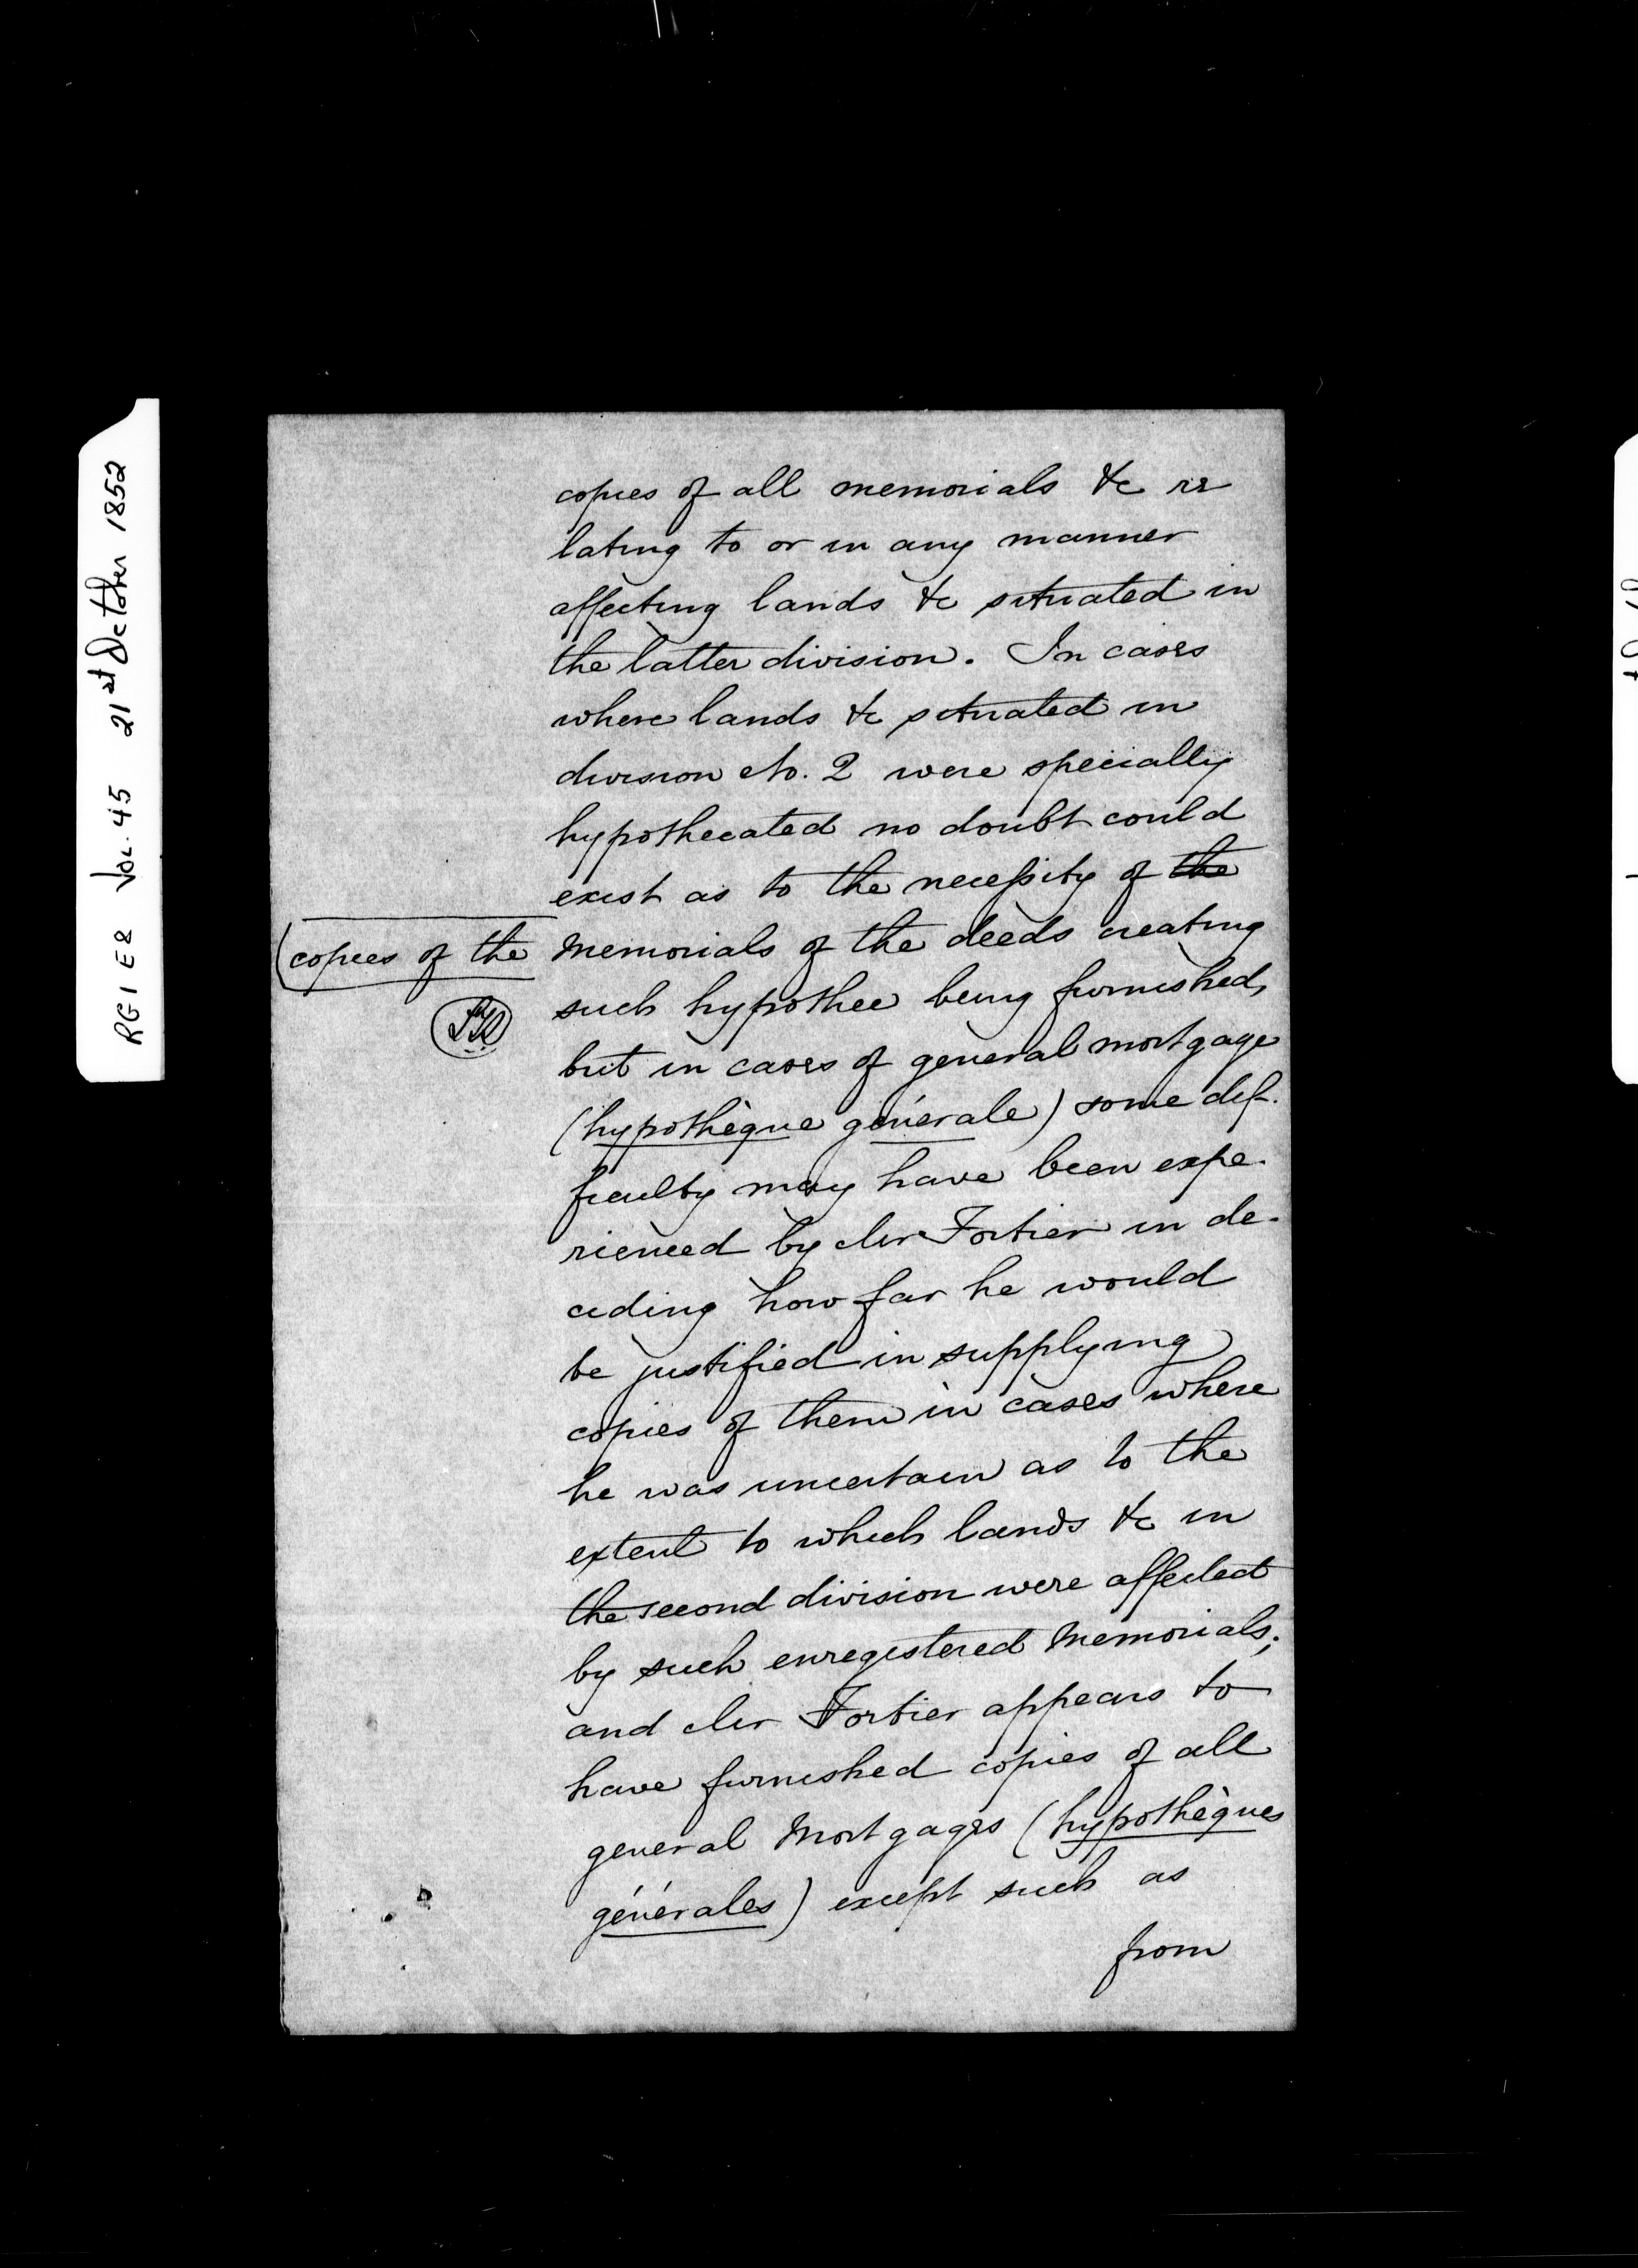 RG1 E8 VOL. 45 21st October 1852
copies of all memorials &c re
lating to or in any manner
affecting lands &c situated in
the latter division. In cases
where lands &c situated in
division No. 2 were specially
hypothecated no doubt could
exist as to the necessity of the
(copies of the Memorials of the deeds creating
such hypothec being furnished,
but in cases of general mortgage
(hypothèque génerale) some dif-
ficulty may have been expe-
rienced by Mr Fortier in de-
ciding how far he would
be justified in supplying
copies of them in cases where
he was uncertain as to the
extent to which lands &c in
the second division were affected
by such enregistered Memorials;
and Mr Fortier appears to
have furnished copies of all
general Mortgages (hypothèques
générales) except such as
from